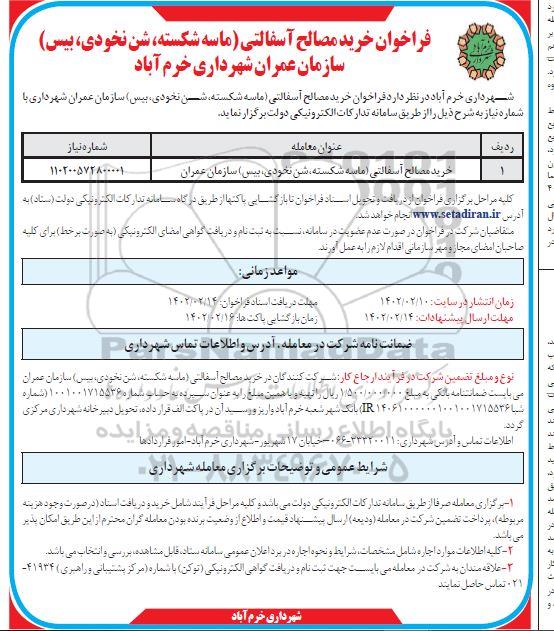 فراخوان خرید مصالح آسفالتی (ماسه شکسته، شن نخودی، بیس)
سازمان عمران شهرداری خرم آباد
شهرداری خرم آباد در نظر دارد فراخوان خرید مصالح آسفالتی (ماسه شکسته، شن نخودی، بیس) سازمان عمران شهرداری با
شماره نیاز به شرح ذیل را از طریق سامانه تدارکات الکترونیکی دولت برگزار نماید.
ردیف عنوان معامله شماره نیاز
۱ خرید مصالح آسفالتی (ماسه شکسته، شن نخودی، بیس) سازمان عمران ۱۱۰۲۰۰۵۷۲۸۰۰۰۰۱
کلیه مراحل برگزاری فراخوان از دریافت و تحویل اسناد فراخوان تا بازگشایی پاکتها از طریق درگاه سامانه تدارکات الکترونیکی دولت (ستاد) به
آدرس www.setadiran.ir انجام خواهد شد.
متقاضیان شرکت در فراخوان در صورت عدم عضویت در سامانه، نسبت به ثبت نام و دریافت گواهی امضای الکترونیکی (به صورت برخط) برای کلیه
صاحبان امضای مجاز و مهر سازمانی اقدام لازم را به عمل آورند.
مواعد زمانی:
زمان انتشار در سایت: ۱۴۰۲/۰۲/۱۰ مهلت دریافت اسناد فراخوان: ۱۴۰۲/۰۲/۱۴
مهلت ارسال پیشنهادات: ۱۴۰۲/۰۲/۱۴ زمان بازگشایی پاکت ها: ۱۴۰۲/۰۲/۱۶
ضمانت نامه شرکت در معامله، آدرس و اطلاعات تماس شهرداری
نوع و مبلغ تضمین شرکت در فرآیند ارجاع کار: شرکت کنندگان در خرید مصالح آسفالتی (ماسه شکسته، شن نخودی، بیس) سازمان عمران
می بایست ضمانتنامه بانکی به مبلغ ۱/۵۰۰/۰۰۰/۰۰۰ ریال را تهیه و یا همین مبلغ را به عنوان سپرده به حساب شماره ۱۰۰۱۰۰۱۷۱۵۵۳۶
شبا IR بانک شهر شعبه خرم آباد واریز و رسید آن در پاکت الف قرار داده، تحویل دبیرخانه شهرداری مرکزی
گردد.
اطلاعات تماس و آدرس شهرداری: ۳۳۳۲۰۰۱۱-۰۶۶- خیابان ۱۷ شهریور- شهرداری خرم آباد- امور قراردادها
شرایط عمومی و توضیحات برگزاری معامله شهرداری
۱-برگزاری معامله صرفا از طریق سامانه تدارکات الکترونیکی دولت می باشد و کلیه مراحل فرآیند شامل خرید و دریافت اسناد (در صورت وجود هزینه
مربوطه)، پرداخت تضمین شرکت در معامله (ودیعه) ارسال پیشنهاد قیمت و اطلاع از وضعیت برنده بودن معامله گران محترم از این طریق امکان پذیر
می باشد.
۲-کلیه اطلاعات موارد اجاره شامل مشخصات، شرایط و نحوه اجاره در برد اعلان عمومی سامانه ستاد، قابل مشاهده، بررسی و انتخاب می باشد.
۳-علاقه مندان به شرکت در معامله می بایست جهت ثبت نام و دریافت گواهی الکترونیکی (توکن) با شماره (مرکز پشتیبانی و راهبری) ۴۱۹۳۴-
۰۲۱ تماس حاصل نمایند.
شهرداری خرم آباد
پایگاه اطلاع رسانی مناقصه و مزایده
۰۲۱-۸۸۳۴۹۶۷۰-۵